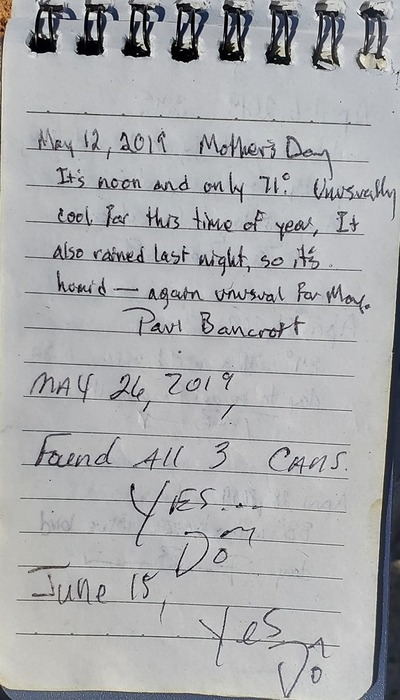 May 12, 2019 Mother's Day
It's noon and only 71° Unusually
cool for this time of year, It
also rained last night, so it's
homid — again unusual for May.
Paul Bancroft
MAY 26, 2019
Found All 3 CANS.
YES...
June 15,
Yes